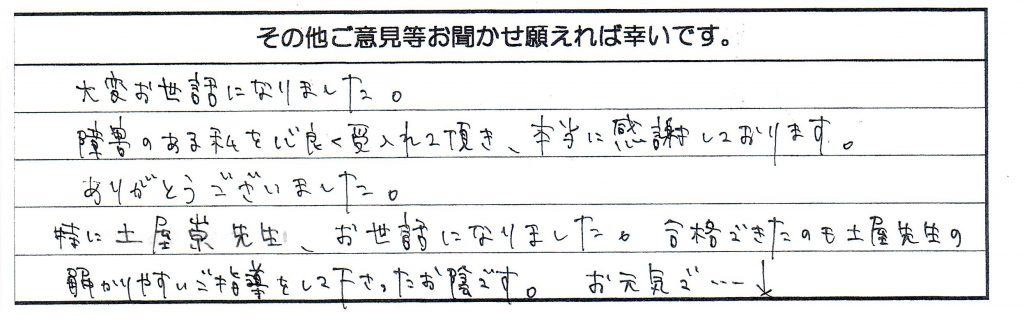 その他ご意見等お聞かせ願えれば幸いです。
大変お世話になりました。
障害のある私を心良く受入れて頂き、本当に感謝しております。
ありがとうございました。
特に土屋崇先生、お世話になりました。合格できたのも土屋先生の
解かりやすいご指導をして下さったお陰です。 お元気で…↓